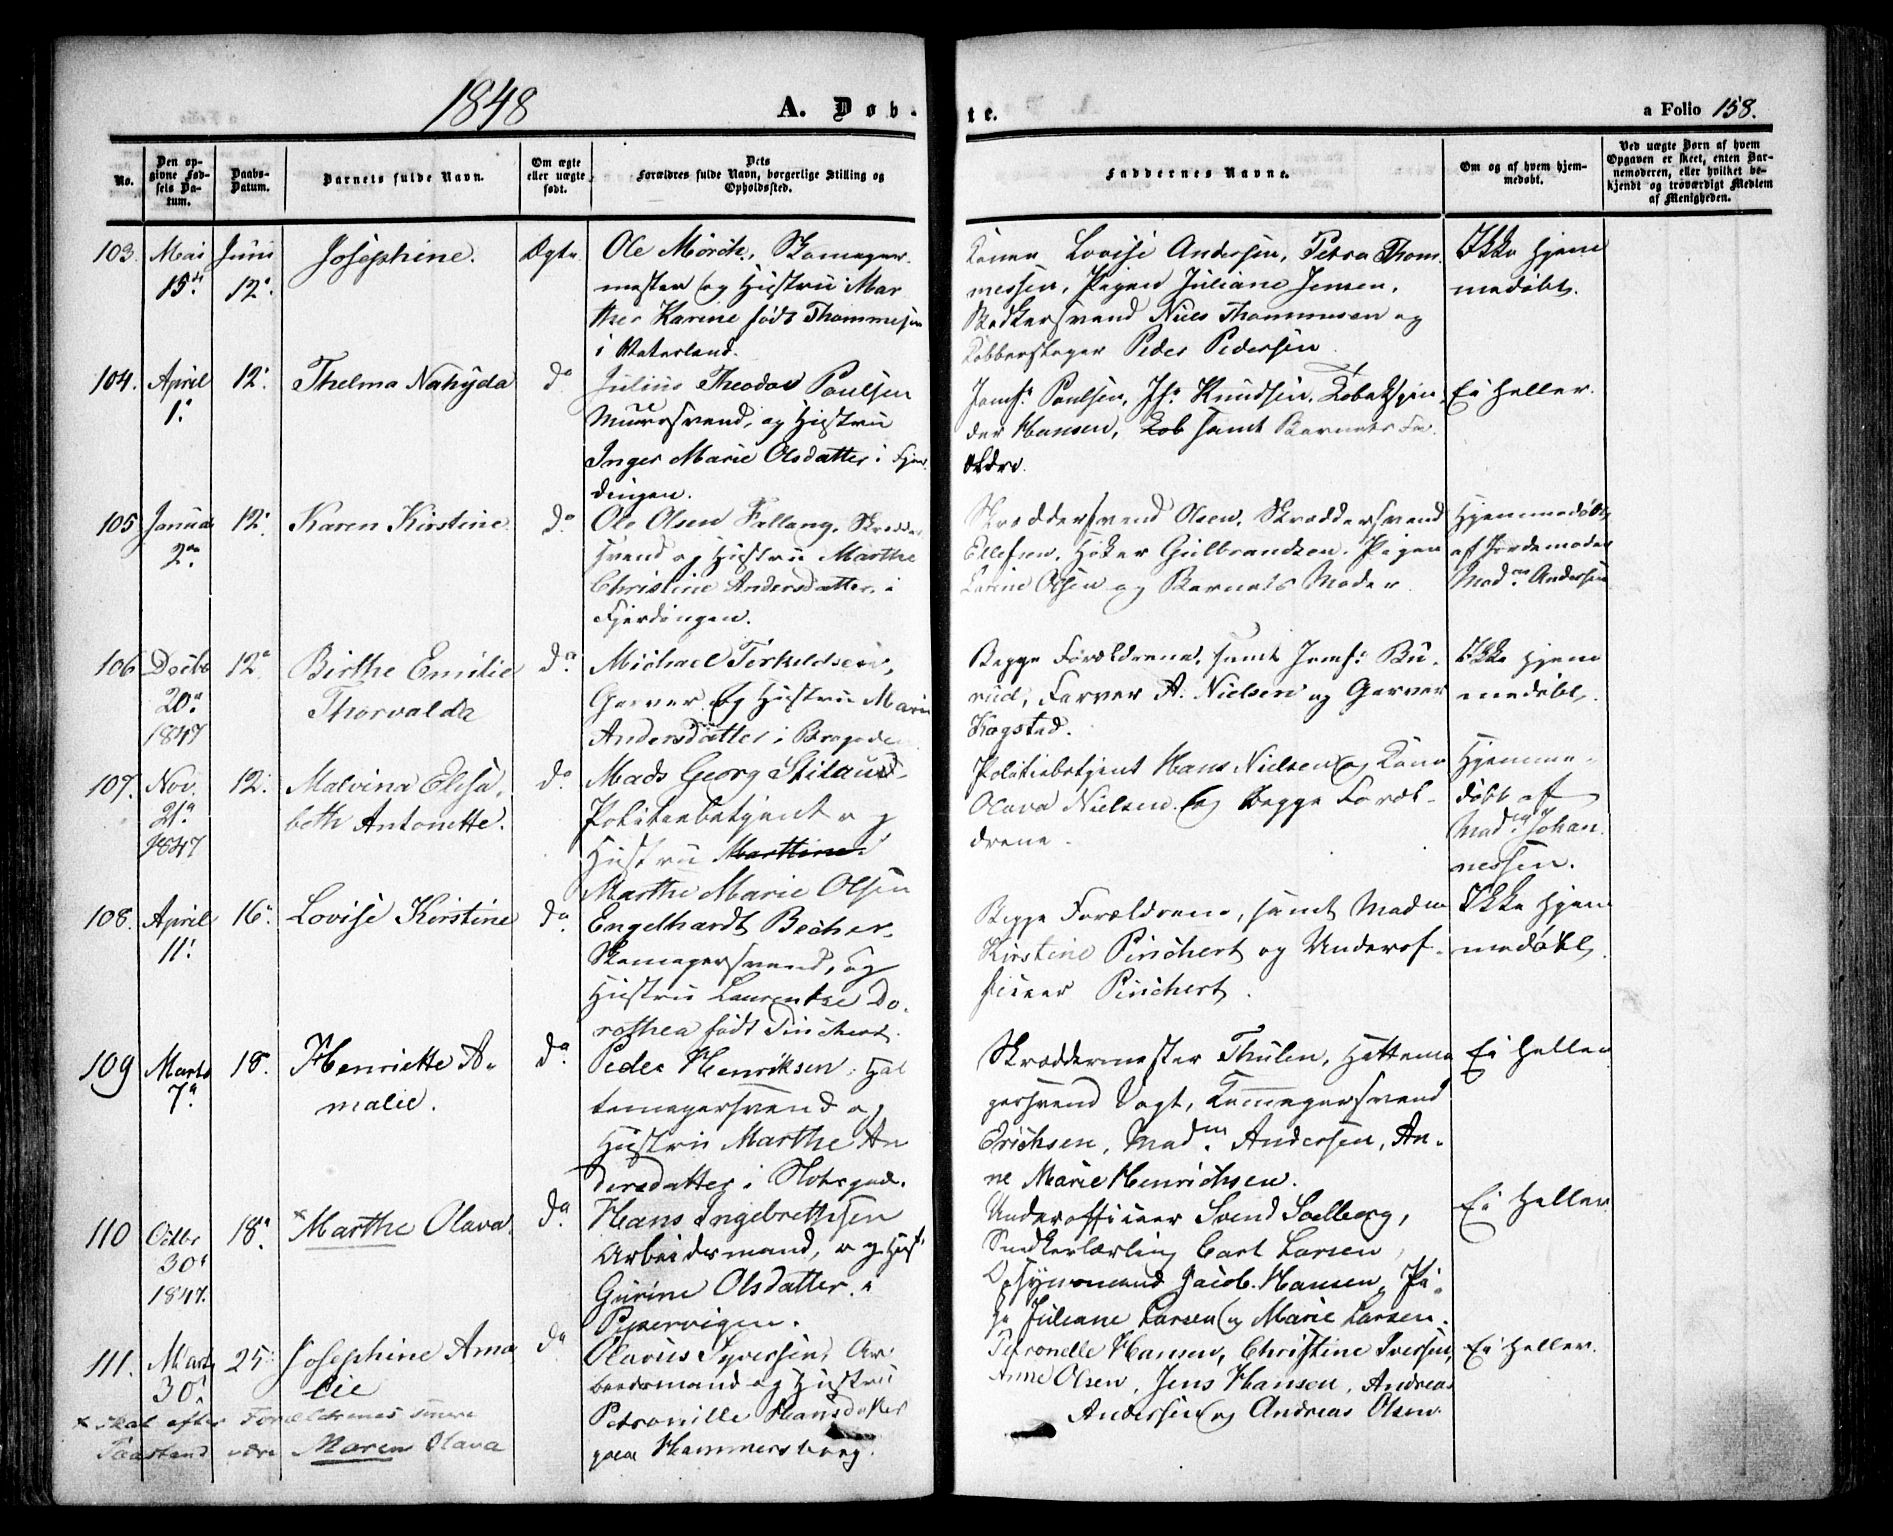 1848
A. Døb-
te.
a Folio 158.
No.
Den op-
givne Fød-
sels Da-
tum.
Daabs-
Datum.
Barnets fulde Navn.
Om ægte
eller uægte
født.
Dets
Forældres fulde Navn, borgerlige Stilling og
Opholdssted.
Faddernes Navne.
Om og af hvem hjem-
medøbt.
Ved uægte Børn af hvem
Opgaven er skeet, enten Bar-
nemoderen, eller hvilket be-
kjendt og troværdigt Medlem
af Menigheden.
103. Mai Juni Josephine. Ægte Ole Mörch, Skomager-
15de 12te mester og Hustru Mar
the Karine født Thommesen
i Vaterland.
Konen Lovise Andersen, Petra Thom-
messen, Pigen Juliane Jensen,
Bödkersvend Niels Thommesen og
Kobberslager Peder Pedersen.
Ikke hjem
medøbt.
104. April 12. Thelma Nahyda do Julius Theodor Poulsen
1. Muursvend, og Hustru
Inger Marie Olsdatter i Fjer-
dingen.
Jomf. Poulsen, Jf. Knudsen, Tobakspin-
der Hansen, samt Barnets Fo-
ældre.
Ei heller.
105 Januar 12. Karen Kirstine do Ole Olsen Fallang, Skrædder
2den svend og Hustru Marthe
Christine Andersdatter i
Fjerdingen.
Skræddersvend Olsen, Skræddersvend
Ellefsen, Høker Gulbrandsen, Pigen
Karine Olsen og Barnets Moder.
Hjemmedøbt
af Jordemoder
Madm Andersen
106 Decbr 12 Birthe Emilie do Michael Terkildsen,
20 Thorvalda Garver og Hustru Marie
1847 Andersdatter i
Begge Forældrene, samt Jomf. Bu-
rud, Farver A. Nielsen og Garver
Kogstad.
Ikke hjem
medøbt.
107. Nov. 12. Malvina Elisa- do Mads Georg
21 beth Antonette. Politiebetjent og
1847 Hustru Marthine
Marthe Marie Olsen
Politiebetjent Hans Nielsen og Kone
Olava Nielsen og begge Foræl-
drene.
Hjemme-
døbt af
Mad Johan-
nessen.
108. April 16 Lovise Kirstine do Engelhardt Becher,
11. Skomagersvend, og
Hustru Laurentze Do-
rothea født Pinchert.
Begge Forældrene, samt Madm
Kirstine Pinchert og Underof-
ficeer Pinchert.
Ikke hjem
medøbt.
109 Marts 18. Henriette A- do Peder Henriksen, Hat
7 malie. temagersvend og
Hustru Marthe An
dersdatter i Slotsgad.
Skræddermester Thulen, Hattema
gersvend Vogt, Skomagersvend
Erichsen, Madm. Andersen, An-
ne Marie Henrichsen.
Ei heller
110 Octbr 18 × Marthe Olava. do Hans Ingebrethsen
30 Arbeidsmand, og Hust.
1847. Gurine Olsdatter i
Pipervigen.
Underofficeer Svend Solberg,
Snedkerlærling Carl Larsen,
Opsynsmand Jacob Hansen, Pi-
ge Juliane Larsen og Marie Larsen.
Ei heller
111. Marts 25 Josephine Ama do Olavus Syversen, Ar
30 lie beidsmand og Hustru
Petronille Hansdatter
paa Hammersborg.
Petronelle Hansen, Christine Iversen,
Anne Olsen, Jens Hansen, Andreas
Andersen og Andreas Olsen
Ei heller.
× Skal efter Forældrenes senere
Paastand være Maren Olava